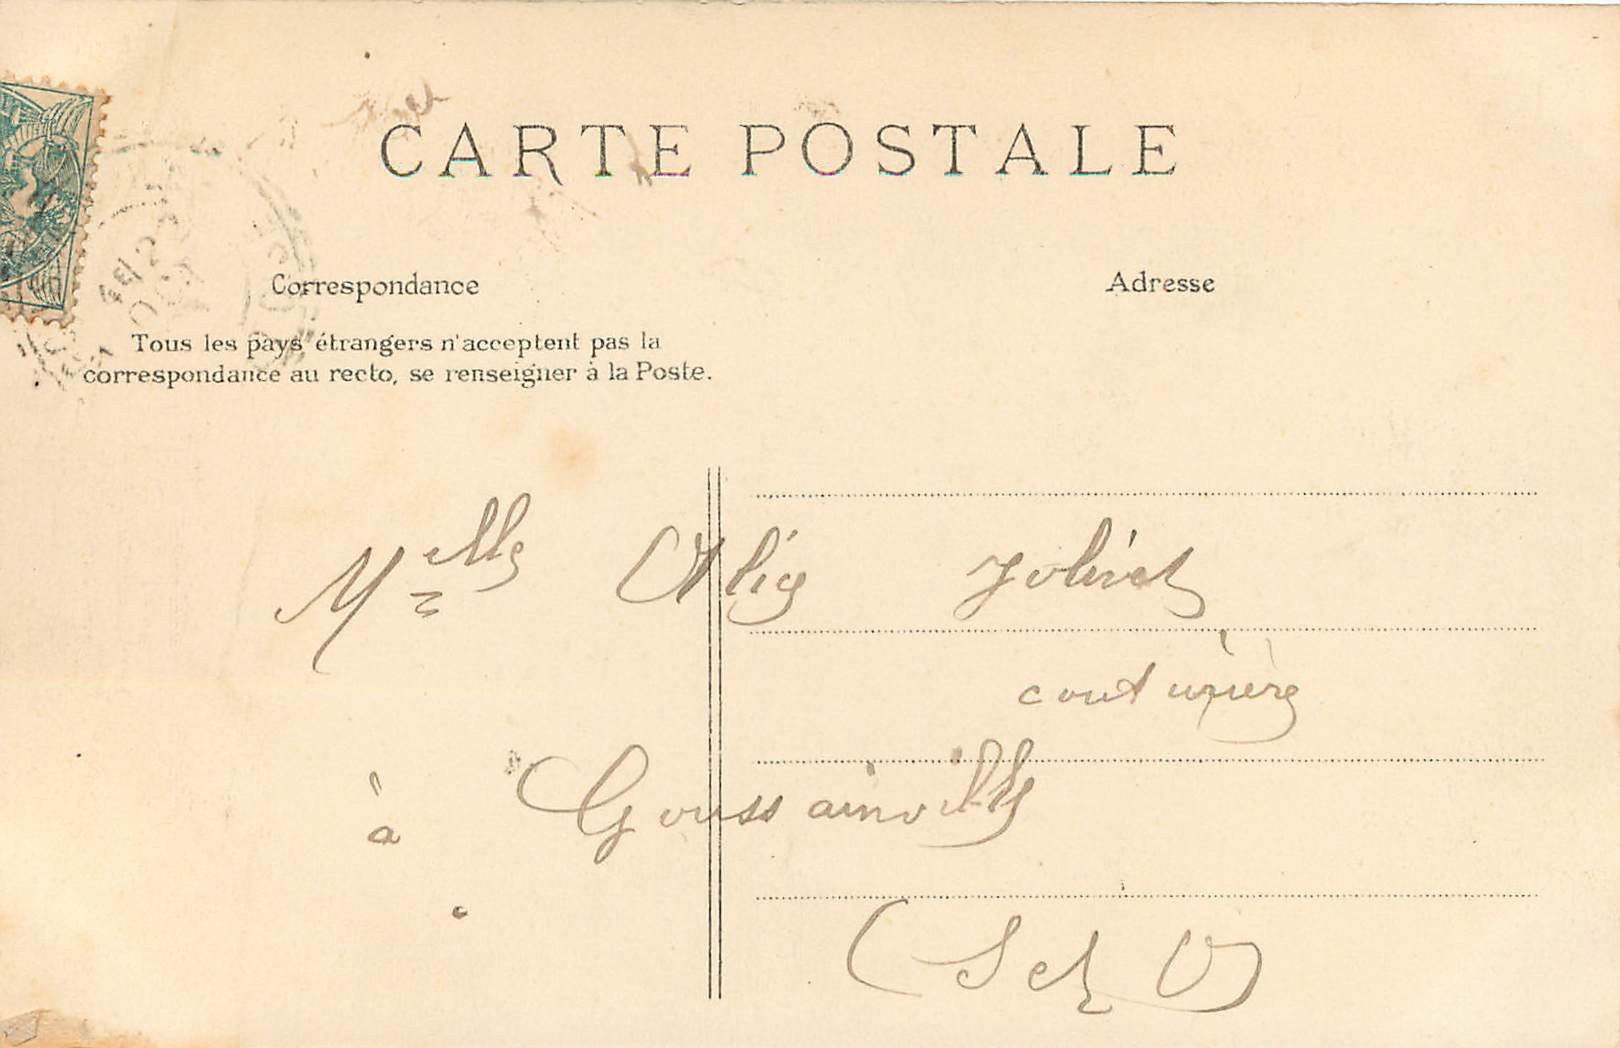 CARTE POSTALE
Correspondance
Adresse
Tous les pays étrangers n'acceptent pas la
correspondance au recto, se renseigner à la Poste.
Melle Alie Jolivet
couturière
à Goussainville
(S et O)